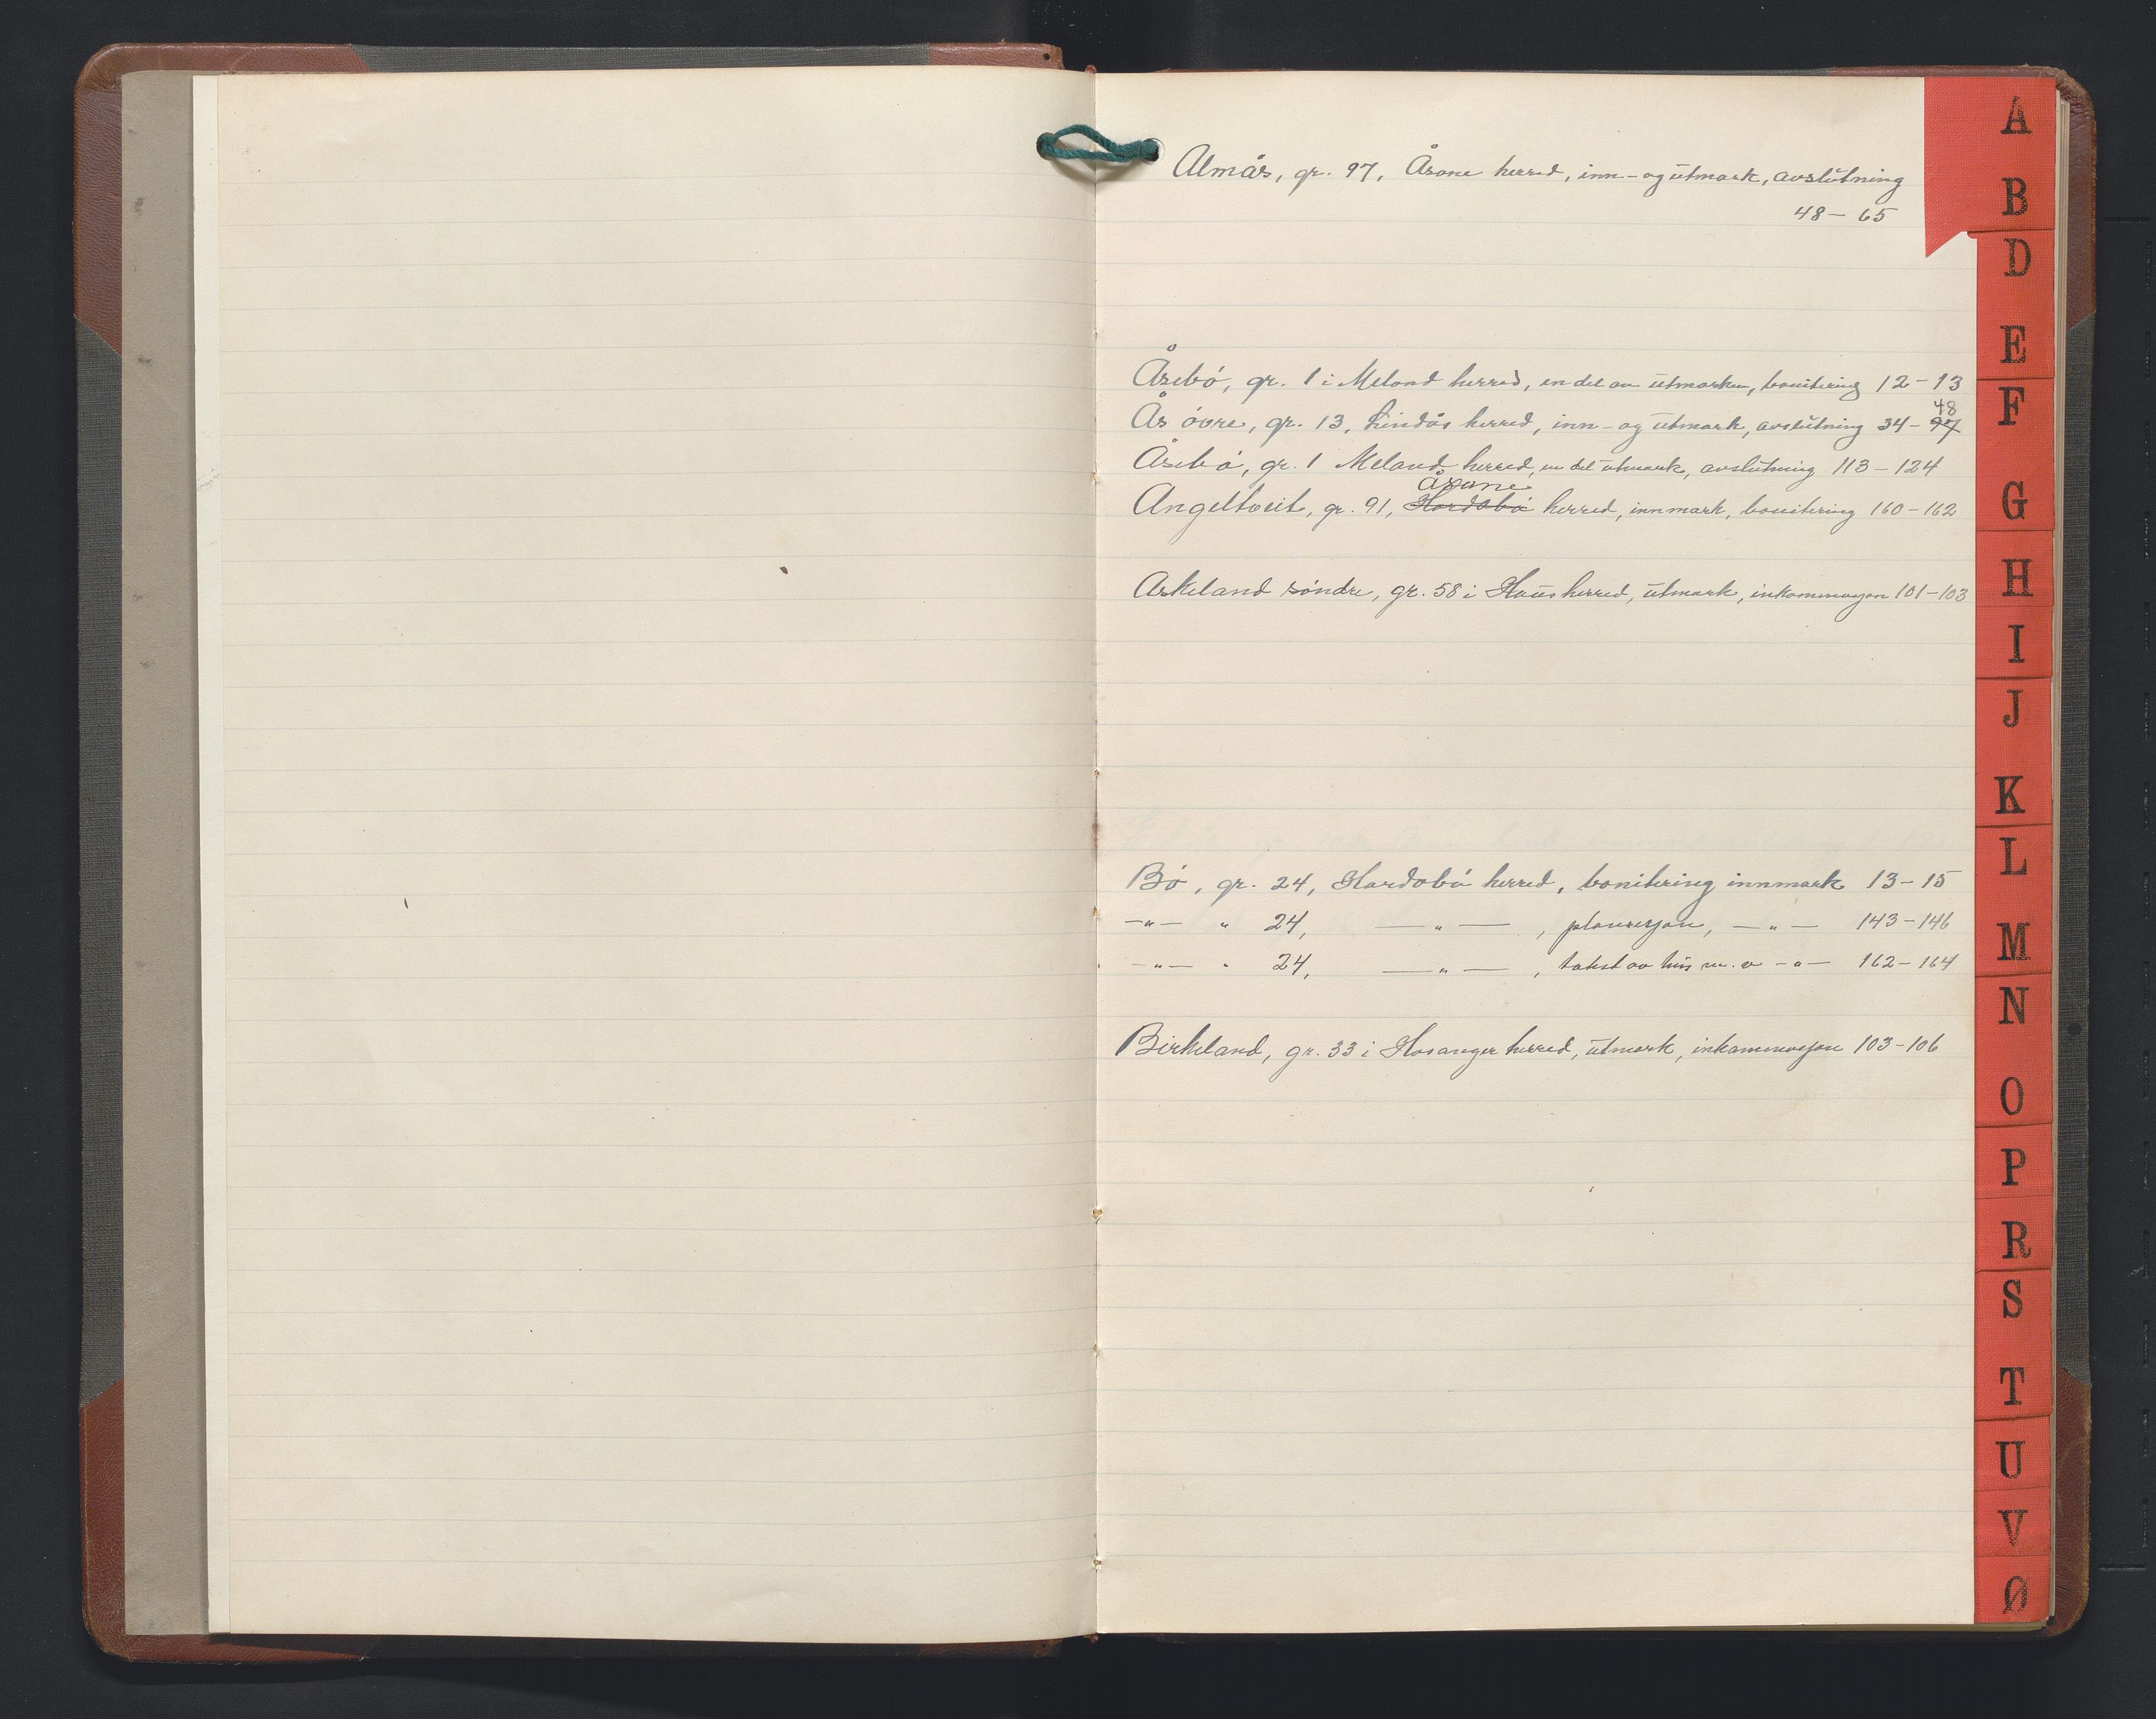 Almås, gr. 97, Åsane herred, inn- og utmark, avslutning
48 — 65
Åsebø, gr. 1 i Meland herred, en del av utmarken, bonitering 12 - 13
48
Ås øvre, gr. 13, Lindås herred, inn- og utmark, avslutning 34 - 97
Åsebø, gr. 1 Meland herred, en del utmark, avslutning 113 - 124
Åsane
Angeltveit, gr. 91, Hordabø herred, innmark, bonitering 160 - 162
Askeland søndre, gr. 58 i Haus herred, utmark, inkaminasjon 101 - 103
Bø, gr. 24, Hordabø herred, bonitering innmark 13 - 15
—"— " 24, —"—, planvisjon, —"— 143 - 146
—"— " 24, —"—, takst av hus m. v —"— 162 - 164
Birkeland, gr. 33 i Hosanger herred, utmark, inkaminasjon 103 - 106
A
B
D
E
F
G
H
I
J
K
L
M
N
O
P
R
S
T
U
V
Ø